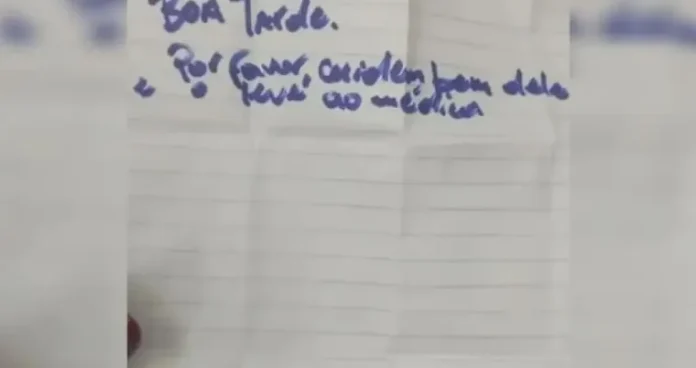 BOA TARDE.
Por favor, cuidem bem dele
e o leve ao médico